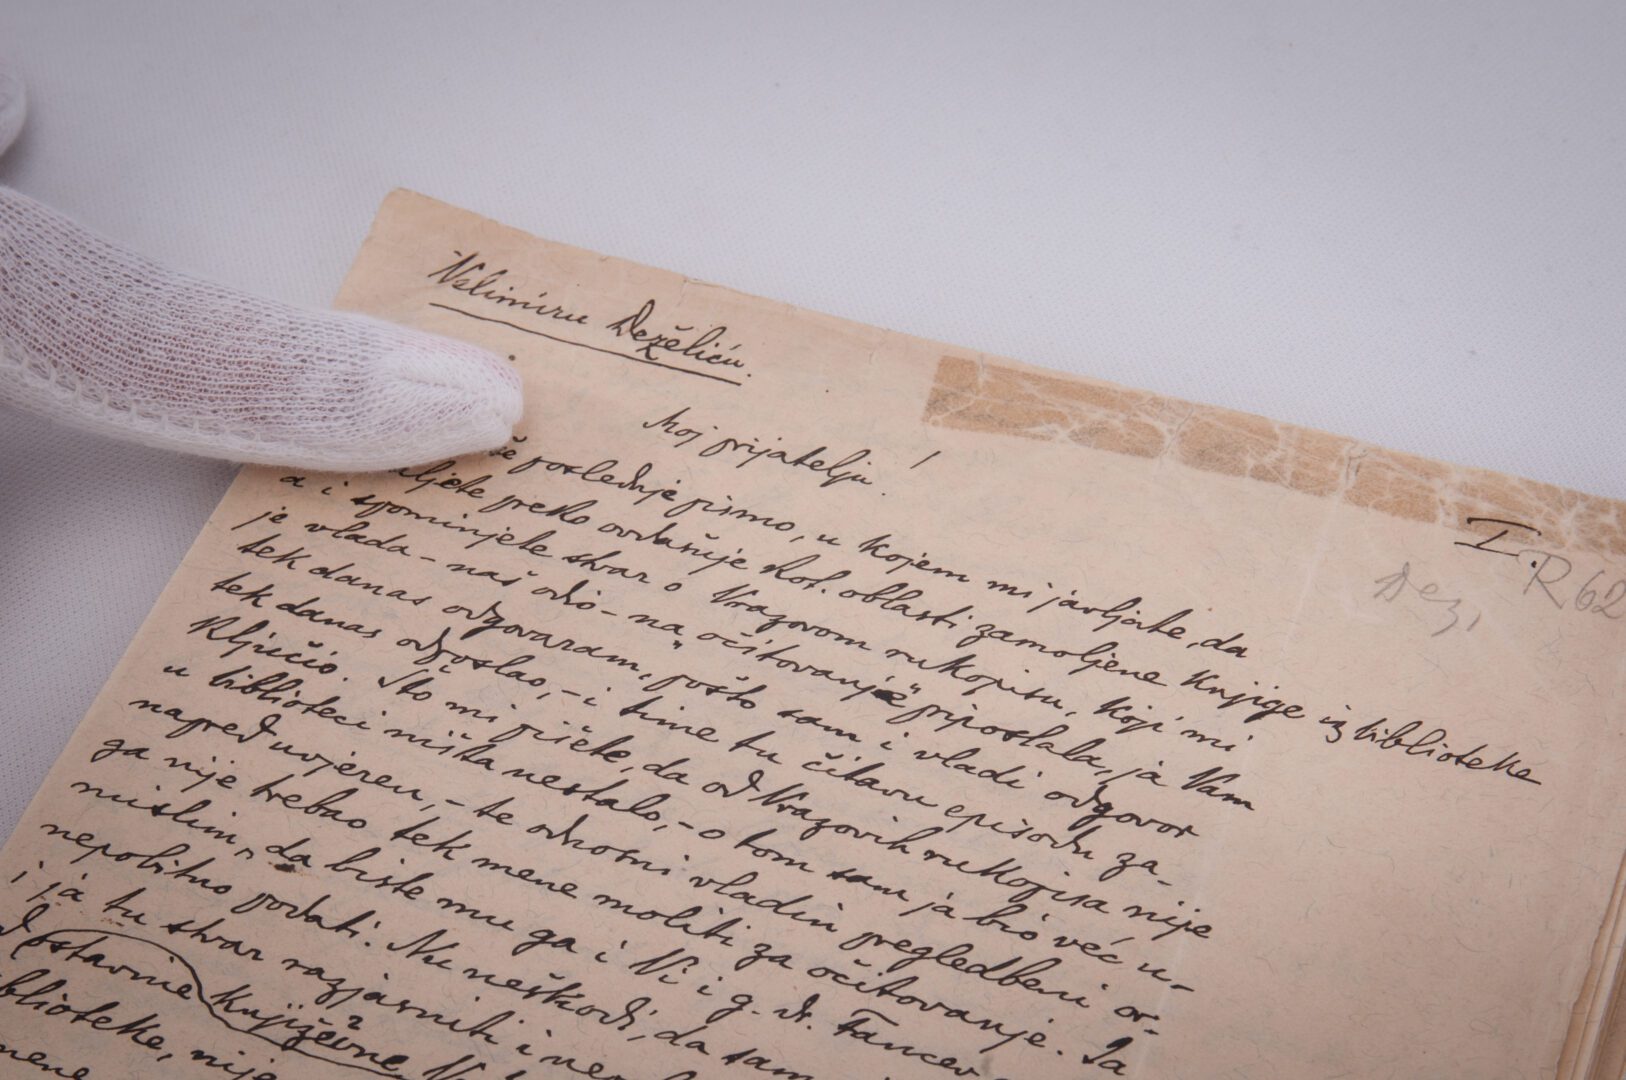 Velimiru Deželiću.
Moj prijatelju!
I.
R 62
Dež,
poslednje pismo, u kojem mi javljate, da
preko ovdašnje kot. oblasti zamoljene knjige iz biblioteke
a i spominjete stvar o Vrazovom rukopisu, koji mi
je vlada – naš odio – na „očitovanje“ priposlala, ja Vam
tek danas odgovaram, pošto sam i vladi odgovor
tek danas odposlao, – i time tu čitavu episodu za-
ključio. Što mi pišete, da od Vrazovih rukopisa nije
u biblioteci ništa nestalo, – o tom sam ja bio već u-
napred uvjeren, – te odnosni vladin pregledbeni or-
gan nije trebao tek mene moliti za očitovanje. Ja
mislim, da biste mu ga i Vi i g. dr. Fancev
nepobitno podati. Nu neškodi, da sam
i ja tu stvar razjasniti i
Dostavnie književne
biblioteke, nije
mene